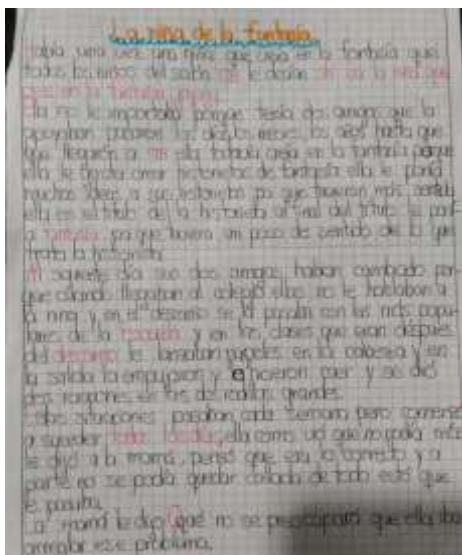 La niña de la fantasía
Había una vez una niña que creía en la fantasía que
todos los niños del salón le decían ahí va la niña que
cree en la fantasía
Ella no le importaba porque tenía dos amigas que la
apoyaban pasaron los días, los meses, los años hasta que
que llegarón a ella todavía creía en la fantasía porque
ella le gusta crear historietas de fantasía ella le ponía
muchas ideas a sus historietas pa que tuvieran más sentido
ella en el título de la historieta al final del título le poní-
a fantasía pa que tuviera un poco de sentido de lo que
trata la historieta
Al siguiente día sus dos amigas habían cambiado por-
que cuando llegaban al colegio ellas no le hablaban a
la niña y en el descanso se la pasaban con las más popu-
lares de la escuela y en las clases que eran después
del descanso le lanzaban papeles en la cabeza y en
la salida la empujaron y e hicieron caer y se dió
dos raspones en las dos rodillas grandes.
situaciones pasaban cada semana pero
a suceder todos los días, ella como vió que no podía más
le dijo a la mamá, pensó que era lo correcto y a
parte no se podía quedar callada de todo esto que
le pasaba.
La mamá le dijo que no se preocupara que ella iba
arreglar ese problema.